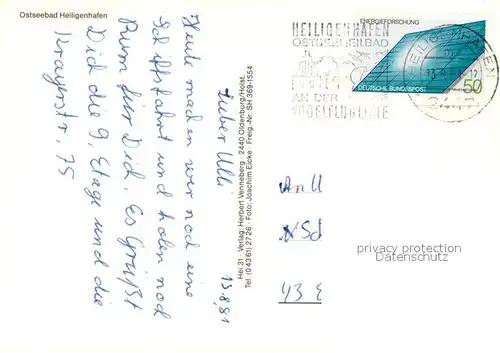 Ostseebad Heiligenhafen
13.8.81
Lieber Ulli
Heute machen wir noch eine
Schiffsfahrt und holen noch
Rum für Dich. Es Grüßt
Dich die 9. Etage und die
75
Hei 31 · Verlag: Herbert Venneberg · 2440 Oldenburg/Holst.
Tel. (04361) 2726 · Foto: Joachim Eicke · Freig.-Nr. SH 389-1554
HEILIGENHAFEN
OSTSEEHEILBAD
AN DER
VOGELFLUGLINIE
ENERGIEFORSCHUNG
DEUTSCHE BUNDESPOST
50
HEILIGENHAFEN
2447
An U
NSd
43 E
privacy protection
Datenschutz